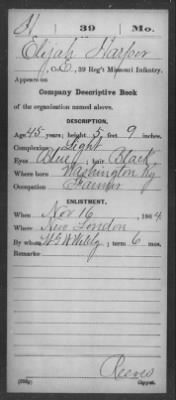 H 39 Mo.
Elijah Harper
, Co. , 39 Reg't Missouri Infantry.
Appears on
Company Descriptive Book
of the organization named above.
DESCRIPTION.
Age 45 years; height 5 feet 9 inches.
Complexion Light
Eyes Blue; hair Black
Where born Washington Ky
Occupation Farmer
ENLISTMENT.
When Nov 16, 1864.
Where New London
By whom ; term 6 mos.
Remarks
Reeves
Copyist.